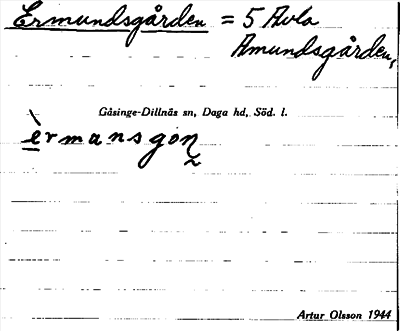 Ermundsgården = 5 Avla
Amundsgården,
Gåsinge-Dillnäs sn, Daga hd, Söd. l.
èrmansgon
Artur Olsson 1944